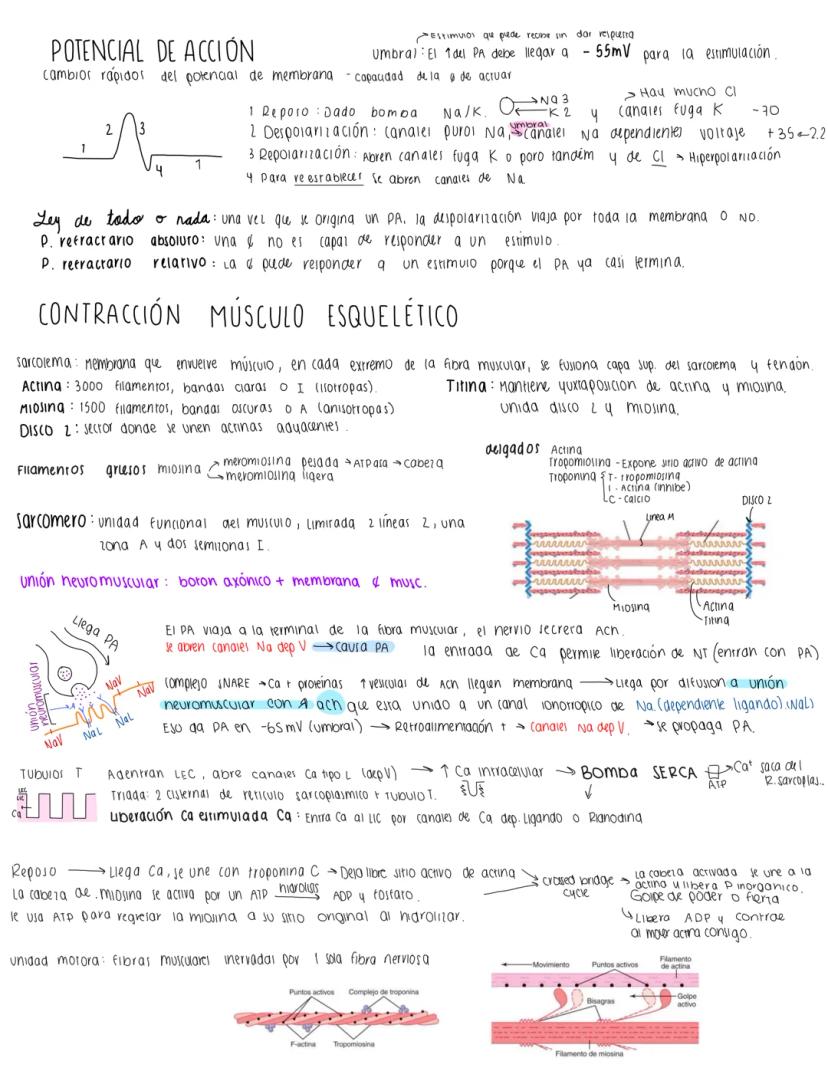 → Estimulos que puede recibir sin dar respuesta
POTENCIAL DE ACCIÓN
Umbral: El ↑ del PA debe llegar a - 55mV para la estimulación.
cambios rápidos del potencial de membrana - capacidad de la ¢ de actuar
1 Reposo: Dado bomba Na/K. → Na 3 ← K 2 y canales fuga K -70
→ Hay mucho Cl
2 Despolarización: canales puros Na, → canales Na dependientes voltaje +35
umbral
3 Repolarización: Abren canales fuga K o poro tandem y de Cl → Hiperpolarización
4 Para reestablecer se abren canales de Na
1 2 3 4 1
Ley de todo o nada: una vez que se origina un PA, la despolarización viaja por toda la membrana O NO.
P. refractario absoluto: una ¢ no es capaz de responder a un estimulo.
P. refractario relativo: La ¢ puede responder a un estimulo porque el PA ya casi termina.
CONTRACCIÓN MÚSCULO ESQUELÉTICO
Sarcolema: Membrana que envuelve músculo, en cada extremo de la fibra muscular, se fusiona capa sup. del sarcolema y tendón.
Actina: 3000 filamentos, bandas claras o I (isotropas).
Titina: Mantiene yuxtaposicion de actina y miosina,
Miosina: 1500 filamentos, bandas oscuras o A (anisotropas)
unida disco Z y miosina.
Disco Z: sector donde se unen actinas adyacentes.
delgados Actina
Tropomiosina - Expone sitio activo de actina
Filamentos gruesos miosina → meromiosina pesada → ATPasa → cabeza
→ meromiosina ligera
Troponina T - tropomiosina
I - Actina (inhibe)
C - calcio
DISCO Z
Linea M
Sarcomero: unidad funcional del musculo, limitada 2 líneas Z, una
zona A y dos semizonas I.
Unión neuromuscular: boton axónico + membrana ¢ musc.
Miosina
Actina
Titina
Llega PA
unión neuromuscular
NaV
NaV
NaL
NaL
NaV
El PA viaja a la terminal de la fibra muscular, el nervio secreta Ach.
se abren canales Na dep V → causa PA la entrada de Ca permite liberación de NT (entran con PA)
Complejo SNARE → Ca + proteinas ↑ vesiculas de Ach llegan membrana → Llega por difusion a unión
neuromuscular con A ach que esta unido a un canal ionotropico de Na (dependiente ligando) (NaL)
Eso da PA en -65 mV (umbral) → Retroalimentación + → canales Na dep V. → se propaga PA.
Tubulos T Adentran LEC, abre canales Ca tipo L (dep V) → ↑ Ca intracelular → Bomba SERCA → Ca+ saca del
ATP R. sarcoplas..
LEC
Ca+
Triada: 2 cisternas de reticulo sarcoplasmico + tubulo T.
Liberación Ca estimulada Ca: Entra Ca al LIC por canales de Ca dep. Ligando o Rianodina
Reposo → Llega Ca, se une con troponina C → Deja libre sitio activo de actina → crossed bridge cycle → La cabeza activada se une a la
actina y libera P inorganico.
La cabeza de miosina se activa por un ATP hidrolisis → ADP y fosfato.
Golpe de poder o fierza
se usa ATP para regresar la miosina a su sitio original al hidrolizar.
↳ Libera ADP y contrae
al mover actina consigo.
Unidad motora: fibras musculares inervadas por 1 sola fibra nerviosa
Puntos activos
Complejo de troponina
F-actina
Tropomiosina
Movimiento
Puntos activos
Filamento
de actina
Bisagras
Golpe
activo
Filamento de miosina